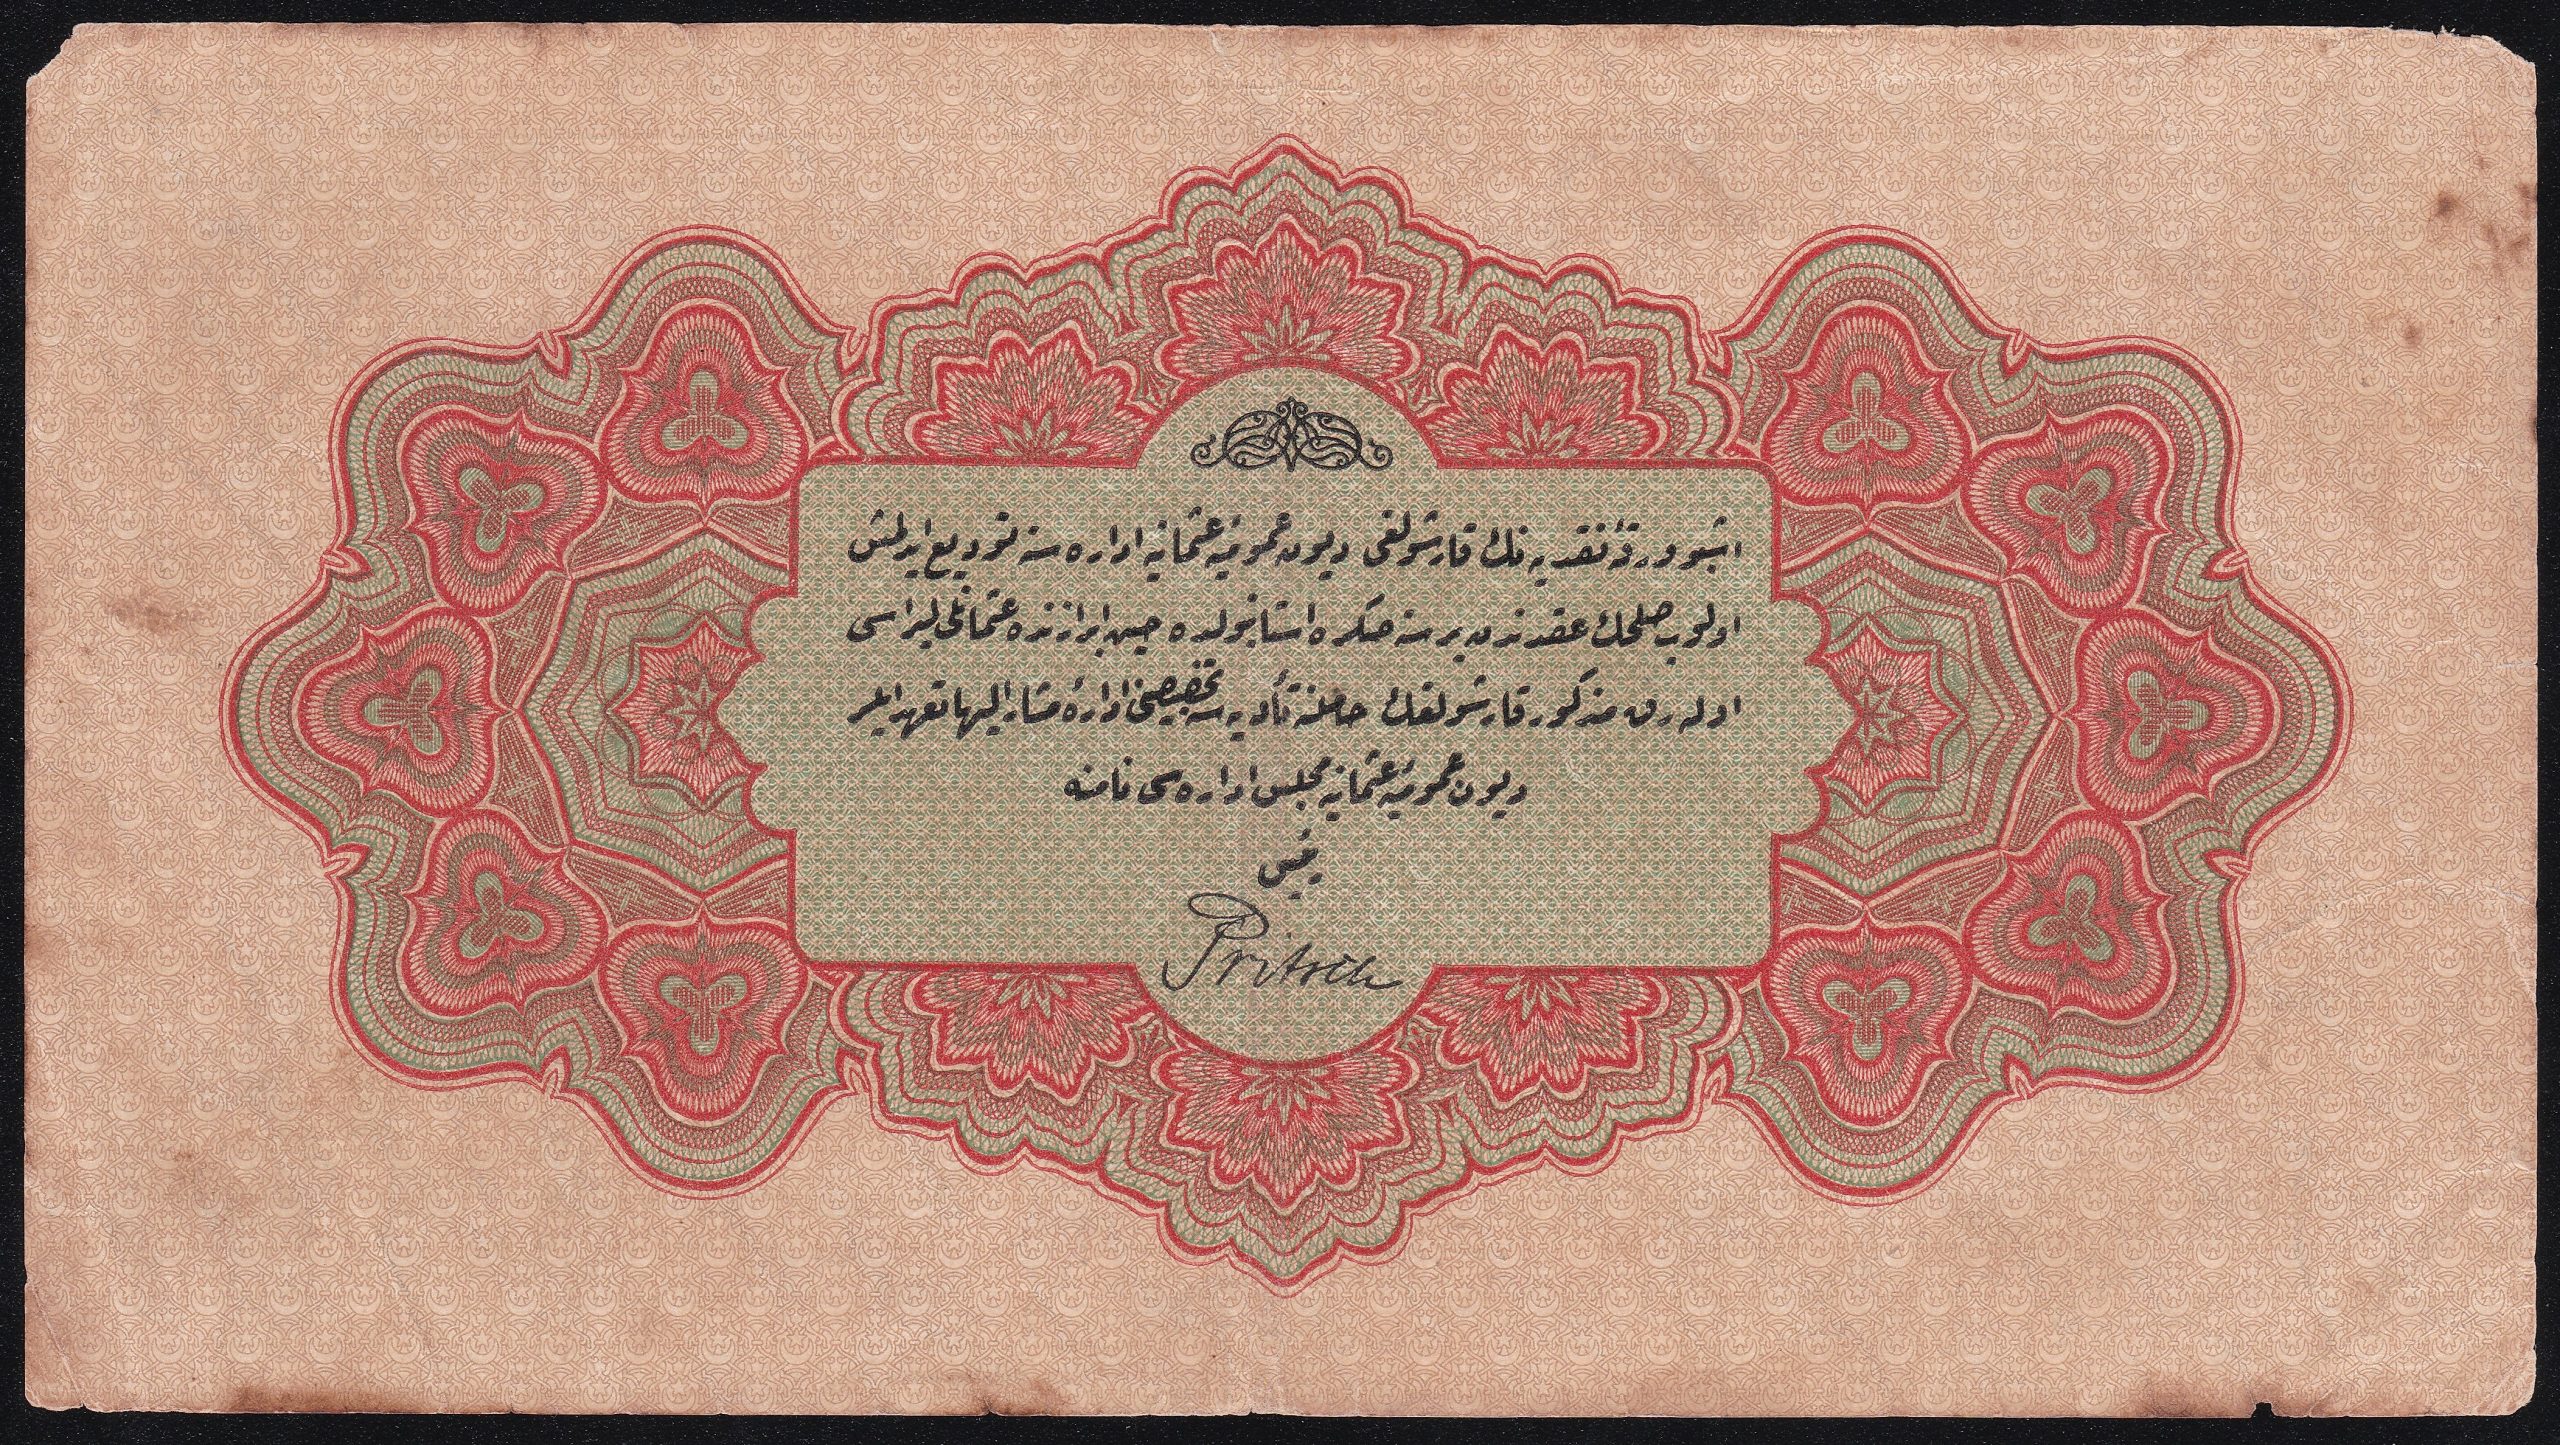 اشبو ورقهٔ نقدیه نك قارشولغی دیون عمومیهٔ عثمانیه اداره سنه تودیع ایدلمش
اولوب صلحك عقدندن بر سنه صكره استانبولده حین ابرازنده عثمانلی لیراسی
اوله رق مذكور قارشولقك حاملنه تأدیه سنه تخصیصنی ادارهٔ مشار الیها تعهد ایلر
دیون عمومیهٔ عثمانیه مجلس اداره سی نامنه
رئیس
Pritsch